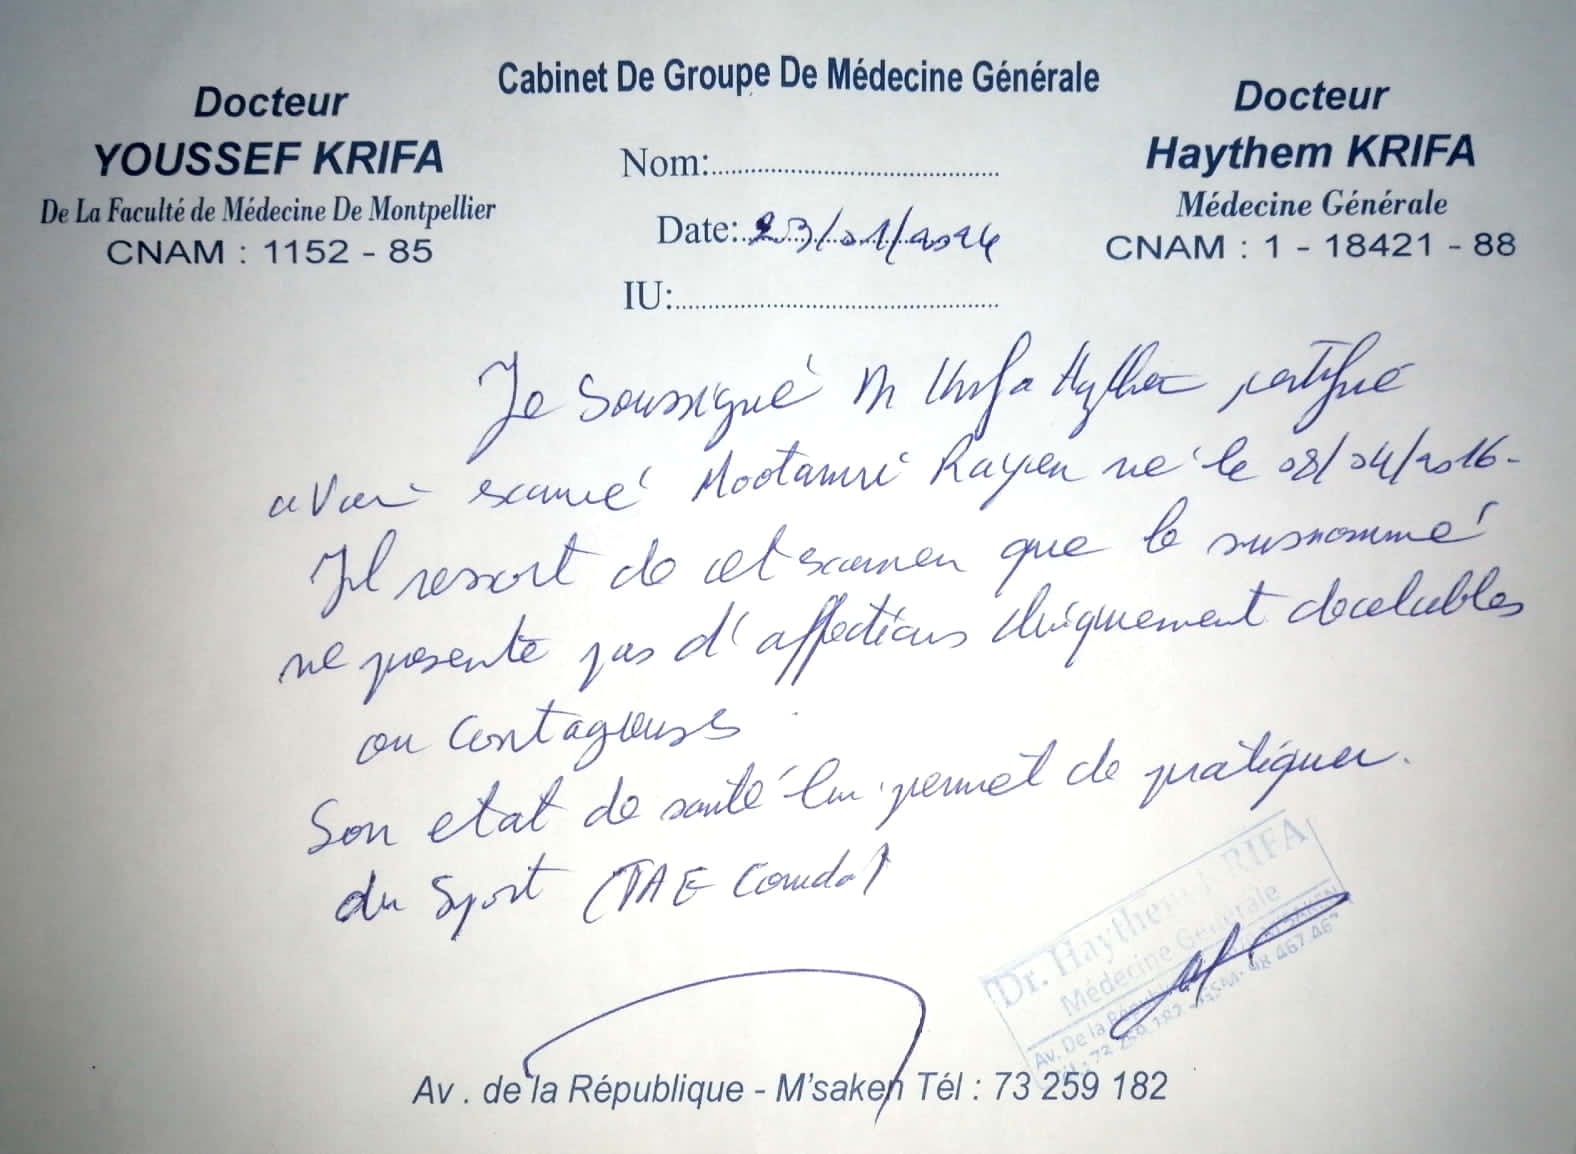 Cabinet De Groupe De Médecine Générale
Docteur
YOUSSEF KRIFA
De La Faculté de Médecine De Montpellier
CNAM : 1152 - 85
Nom:
Date: 23/01/2024
IU:
Docteur
Haythem KRIFA
Médecine Générale
CNAM : 1 - 18421 - 88
Je Soussigné Krifa Haythem certifie
avoir examiné Rayen né le 08/04/2016-
Il ressort de cet examen que le susnommé
ne présente pas d'affections cliniquement decelables
ou Contagieuses.
Son etat de santé lui permet de pratiquer.
du Sport (TAE
Dr. Haythem KRIFA
Médecine Générale
Av. De la République M'SAKEN
Tél : 73 259 182 - GSM: 98 467 467
Av . de la République - M'saken Tél : 73 259 182